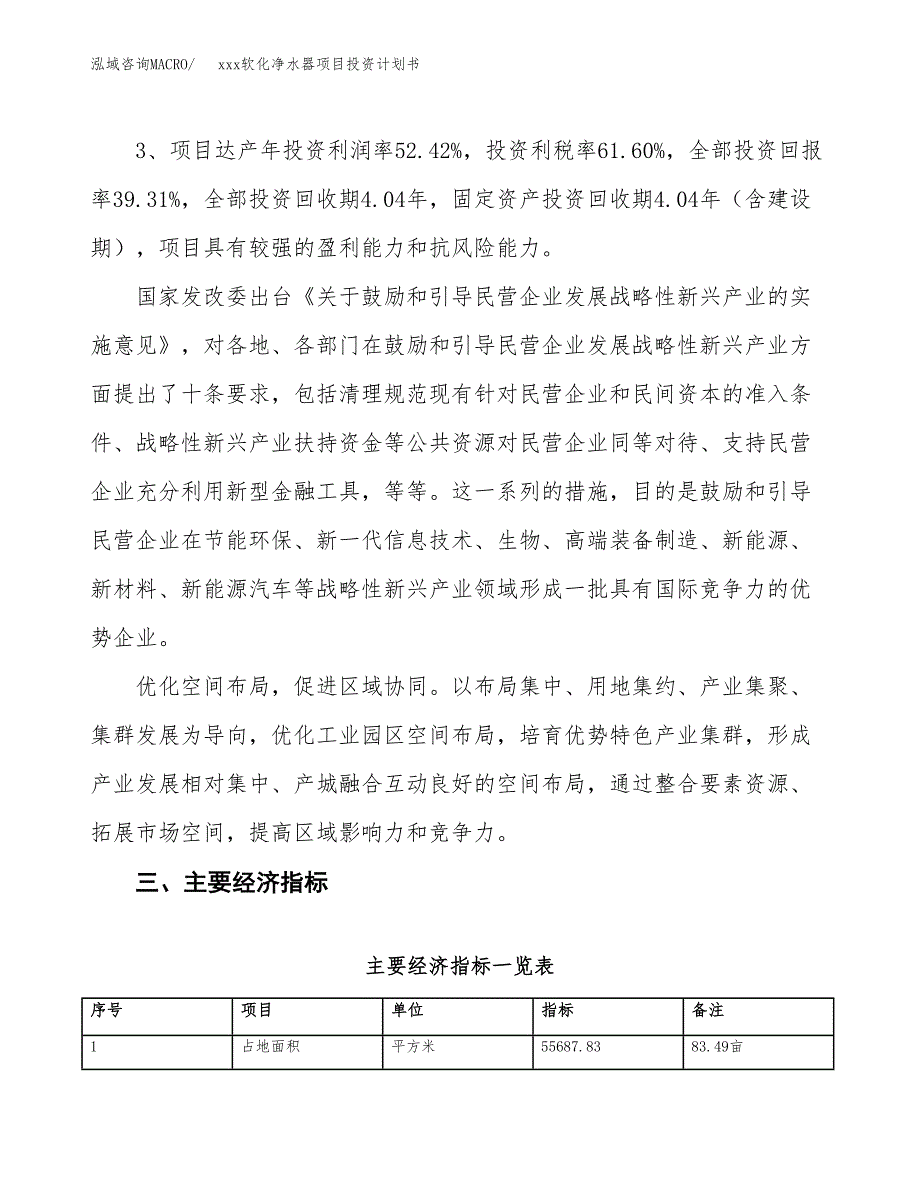 泓域咨询MACRO/ xxx软化净水器项目投资计划书
3、项目达产年投资利润率52.42%，投资利税率61.60%，全部投资回报
率39.31%，全部投资回收期4.04年，固定资产投资回收期4.04年（含建设
期），项目具有较强的盈利能力和抗风险能力。
国家发改委出台《关于鼓励和引导民营企业发展战略性新兴产业的实
施意见》，对各地、各部门在鼓励和引导民营企业发展战略性新兴产业方
面提出了十条要求，包括清理规范现有针对民营企业和民间资本的准入条
件、战略性新兴产业扶持资金等公共资源对民营企业同等对待、支持民营
企业充分利用新型金融工具，等等。这一系列的措施，目的是鼓励和引导
民营企业在节能环保、新一代信息技术、生物、高端装备制造、新能源、
新材料、新能源汽车等战略性新兴产业领域形成一批具有国际竞争力的优
势企业。
优化空间布局，促进区域协同。以布局集中、用地集约、产业集聚、
集群发展为导向，优化工业园区空间布局，培育优势特色产业集群，形成
产业发展相对集中、产城融合互动良好的空间布局，通过整合要素资源、
拓展市场空间，提高区域影响力和竞争力。
三、主要经济指标
主要经济指标一览表
序号 项目 单位 指标 备注
1 占地面积 平方米 55687.83 83.49亩